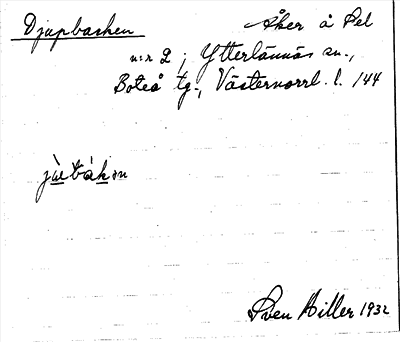 Djupbacken Åker å Pel
n:r 2; Ytterlännäs sn.,
Boteå tg., Västernorrl. l. 144
Sven Hiller 1932